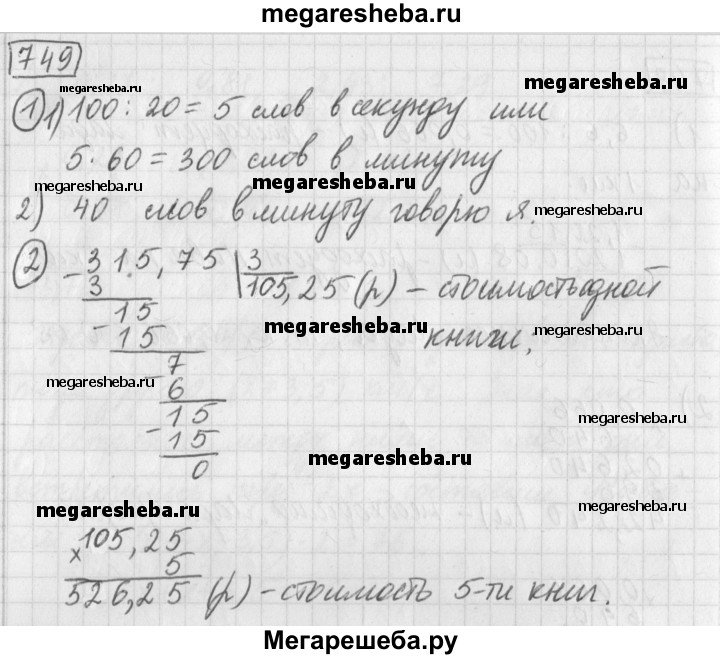 megaresheba.ru
749
megaresheba.ru
megaresheba.ru
1 1) 100 : 20 = 5 слов в секунду или
5 · 60 = 300 слов в минуту
megaresheba.ru
megaresheba.ru
2) 40 слов в минуту говорю я.
2 - 315,75 | 3
3 105,25 (р) – стоимость одной
15
- 15 книги.
megaresheba.ru
megaresheba.ru
7
- 6
megaresheba.ru
15
- 15
0
megaresheba.ru
megaresheba.ru
megaresheba.ru
× 105,25
5
526,25 (р) – стоимость 5-ти книг.
Мегарешеба.ру